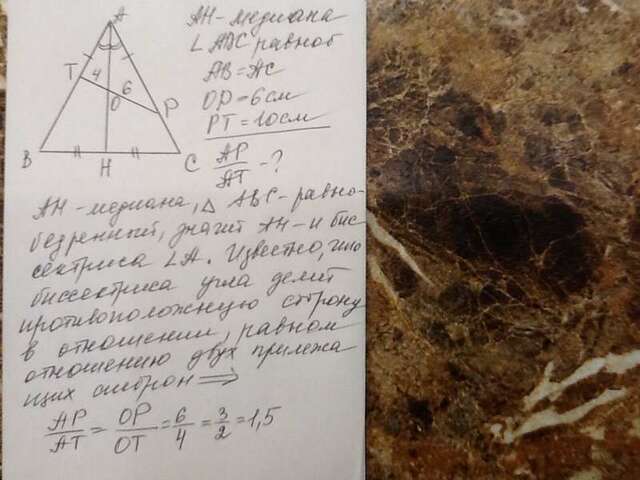 A
T
4
6
O
P
B
H
C
AH-медиана
∠ABC равноб
AB=AC
OP=6см
PT=10см
AP/AT-?
AH-медиана, △ ABC-равно-
бедренный, значит AH-и бис
сектриса ∠A. Известно, что
биссектриса угла делит
противоположную сторону
в отношении, равном
отношению двух прилежа
щих сторон ⟹
AP/AT=OP/OT=6/4=3/2=1,5